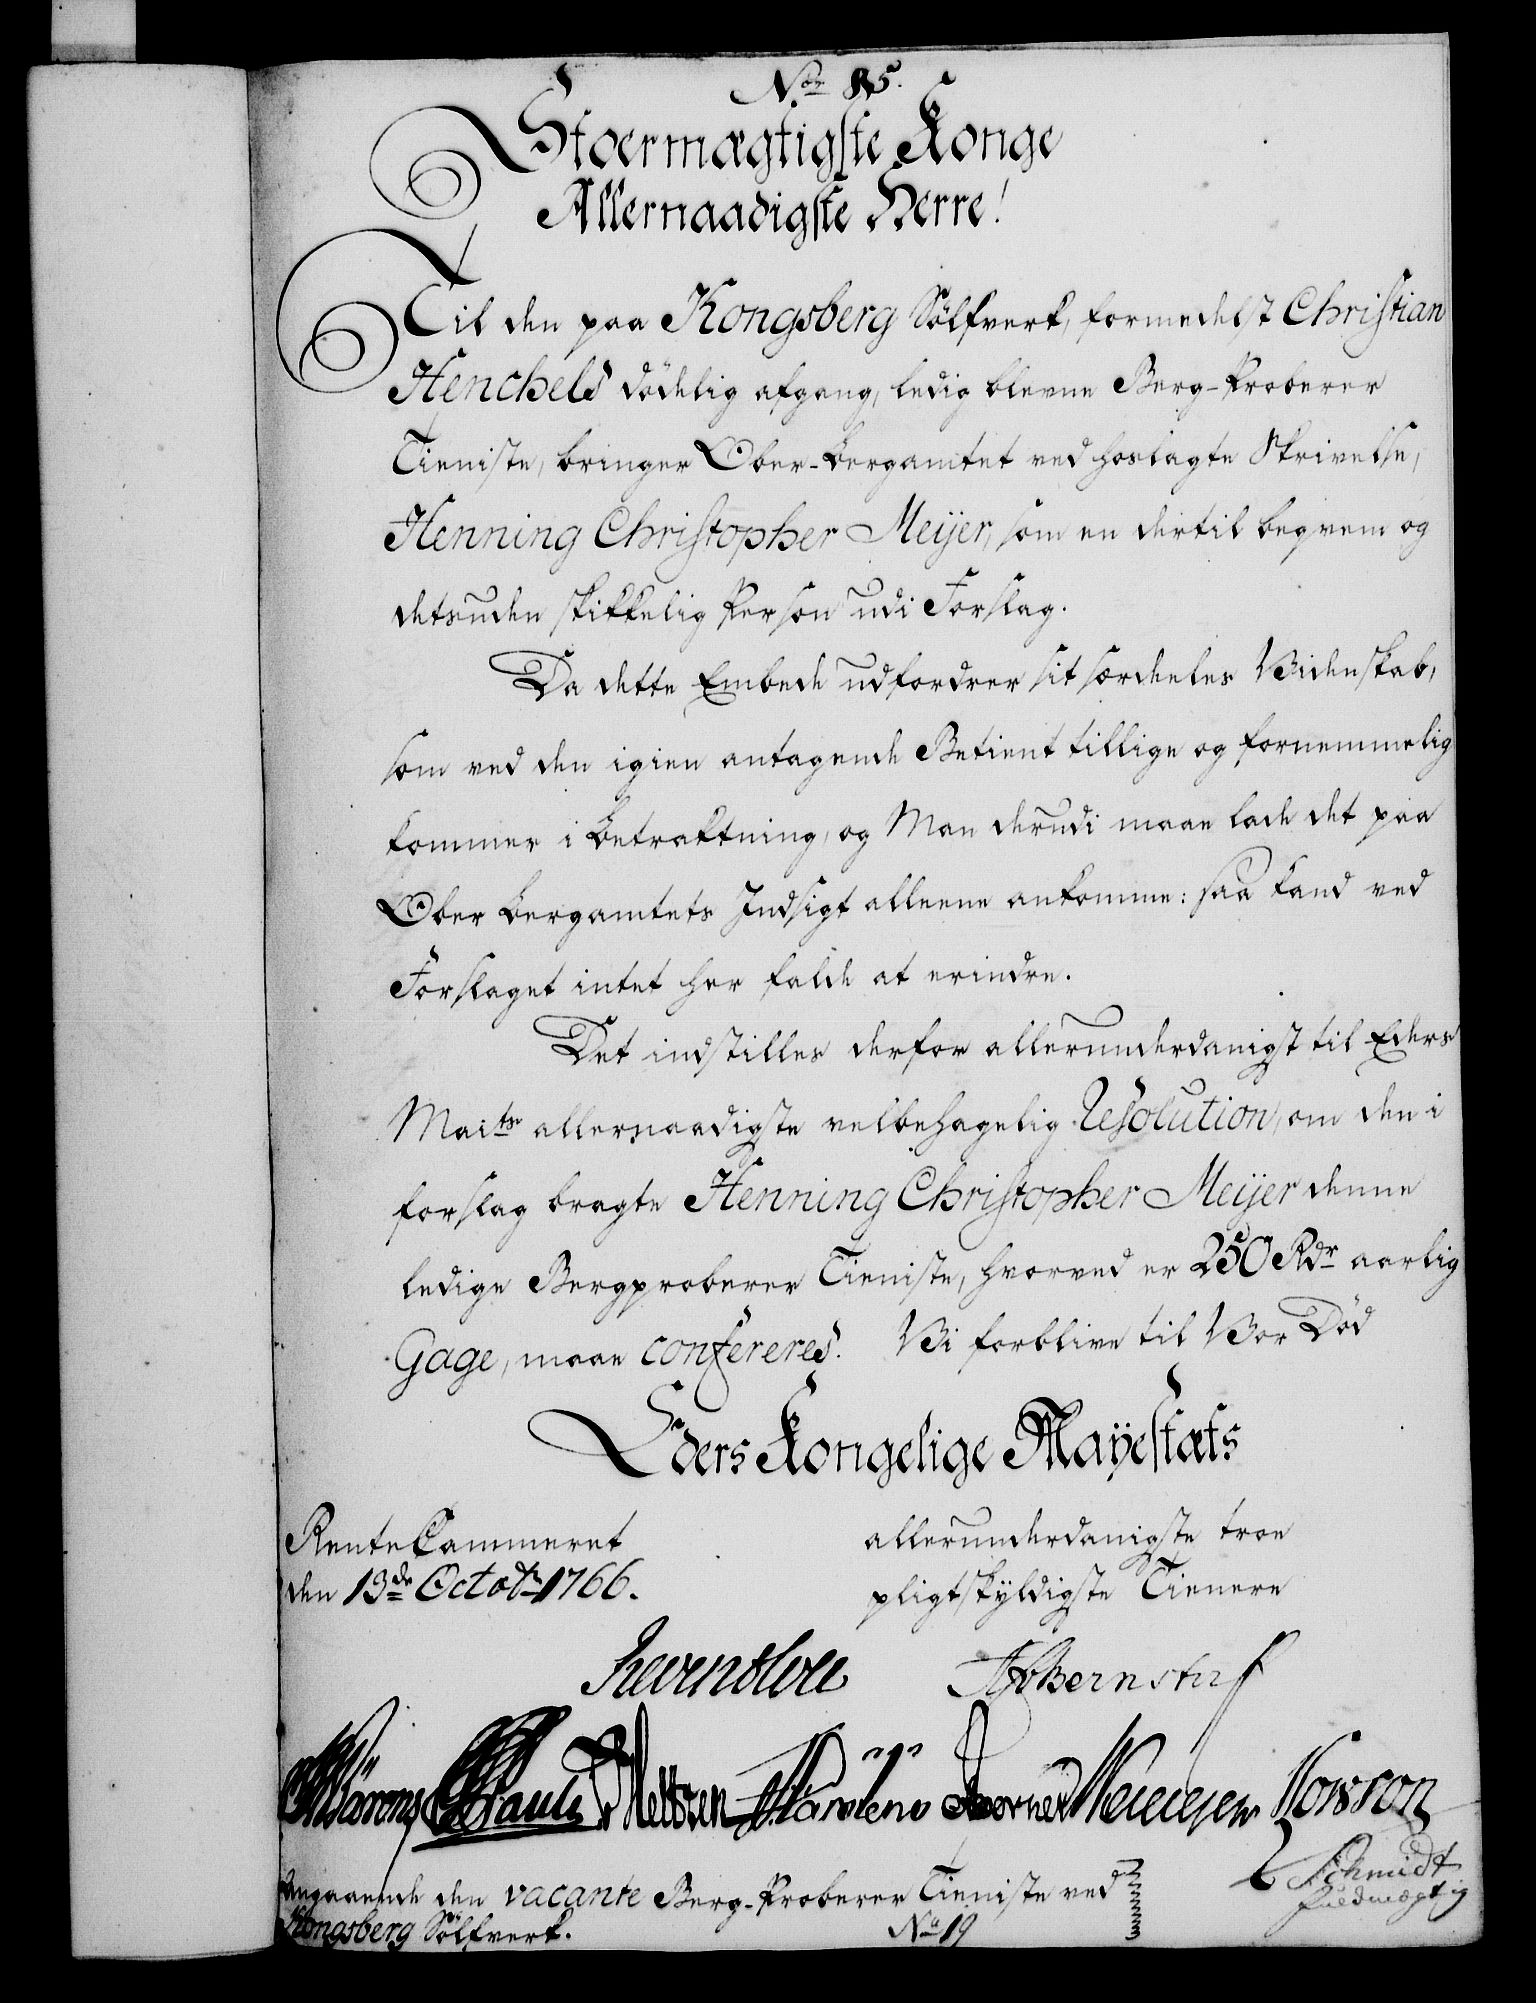 No 85.
Stoermægtigste Konge
Allernaadigste Herre!
Til den paa Kongsberg Sölfverk, formedelst Christian
Henchels dödelig afgang, ledig blevne Berg-Proberer
Tieniste, bringer Ober-bergamtet ved hoslagte Skrivelse,
Henning Christopher Meijer, som en dertil beqvem og
detsuden skikkelig Person udi Forslag.
Da dette Embede udfordrer sit særdeles Videnskab,
som ved den igien antagende Betient tillige og fornemmelig
kommer i betraktning, og Man derudi maae lade det paa
Ober bergamtets Indsigt alleene ankomme: saa kand ved
Forslaget intet her falde at erindre.
Det indstilles derfor allerunderdanigst til Eders
Maits allernaadigste velbehagelig Resolution, om den i
forslag bragte Henning Christopher Meijer denne
ledige Bergproberer Tieniste, hvorved er 250 Rdr aarlig
Gage, maae confereres. Vi forblive til Vor Död
Eders Kongelige Mayestæts
RenteCammeret
den 13de Octobr 1766.
allerunderdanigste troe
pligtskyldigste Tienere
Reventlow
Bernstorf
Pauli
Schmidt
fuldmægtig
Angaaende den vacante Berg-Proberer Tieniste ved
Kongsberg Sölfverk.
No 19